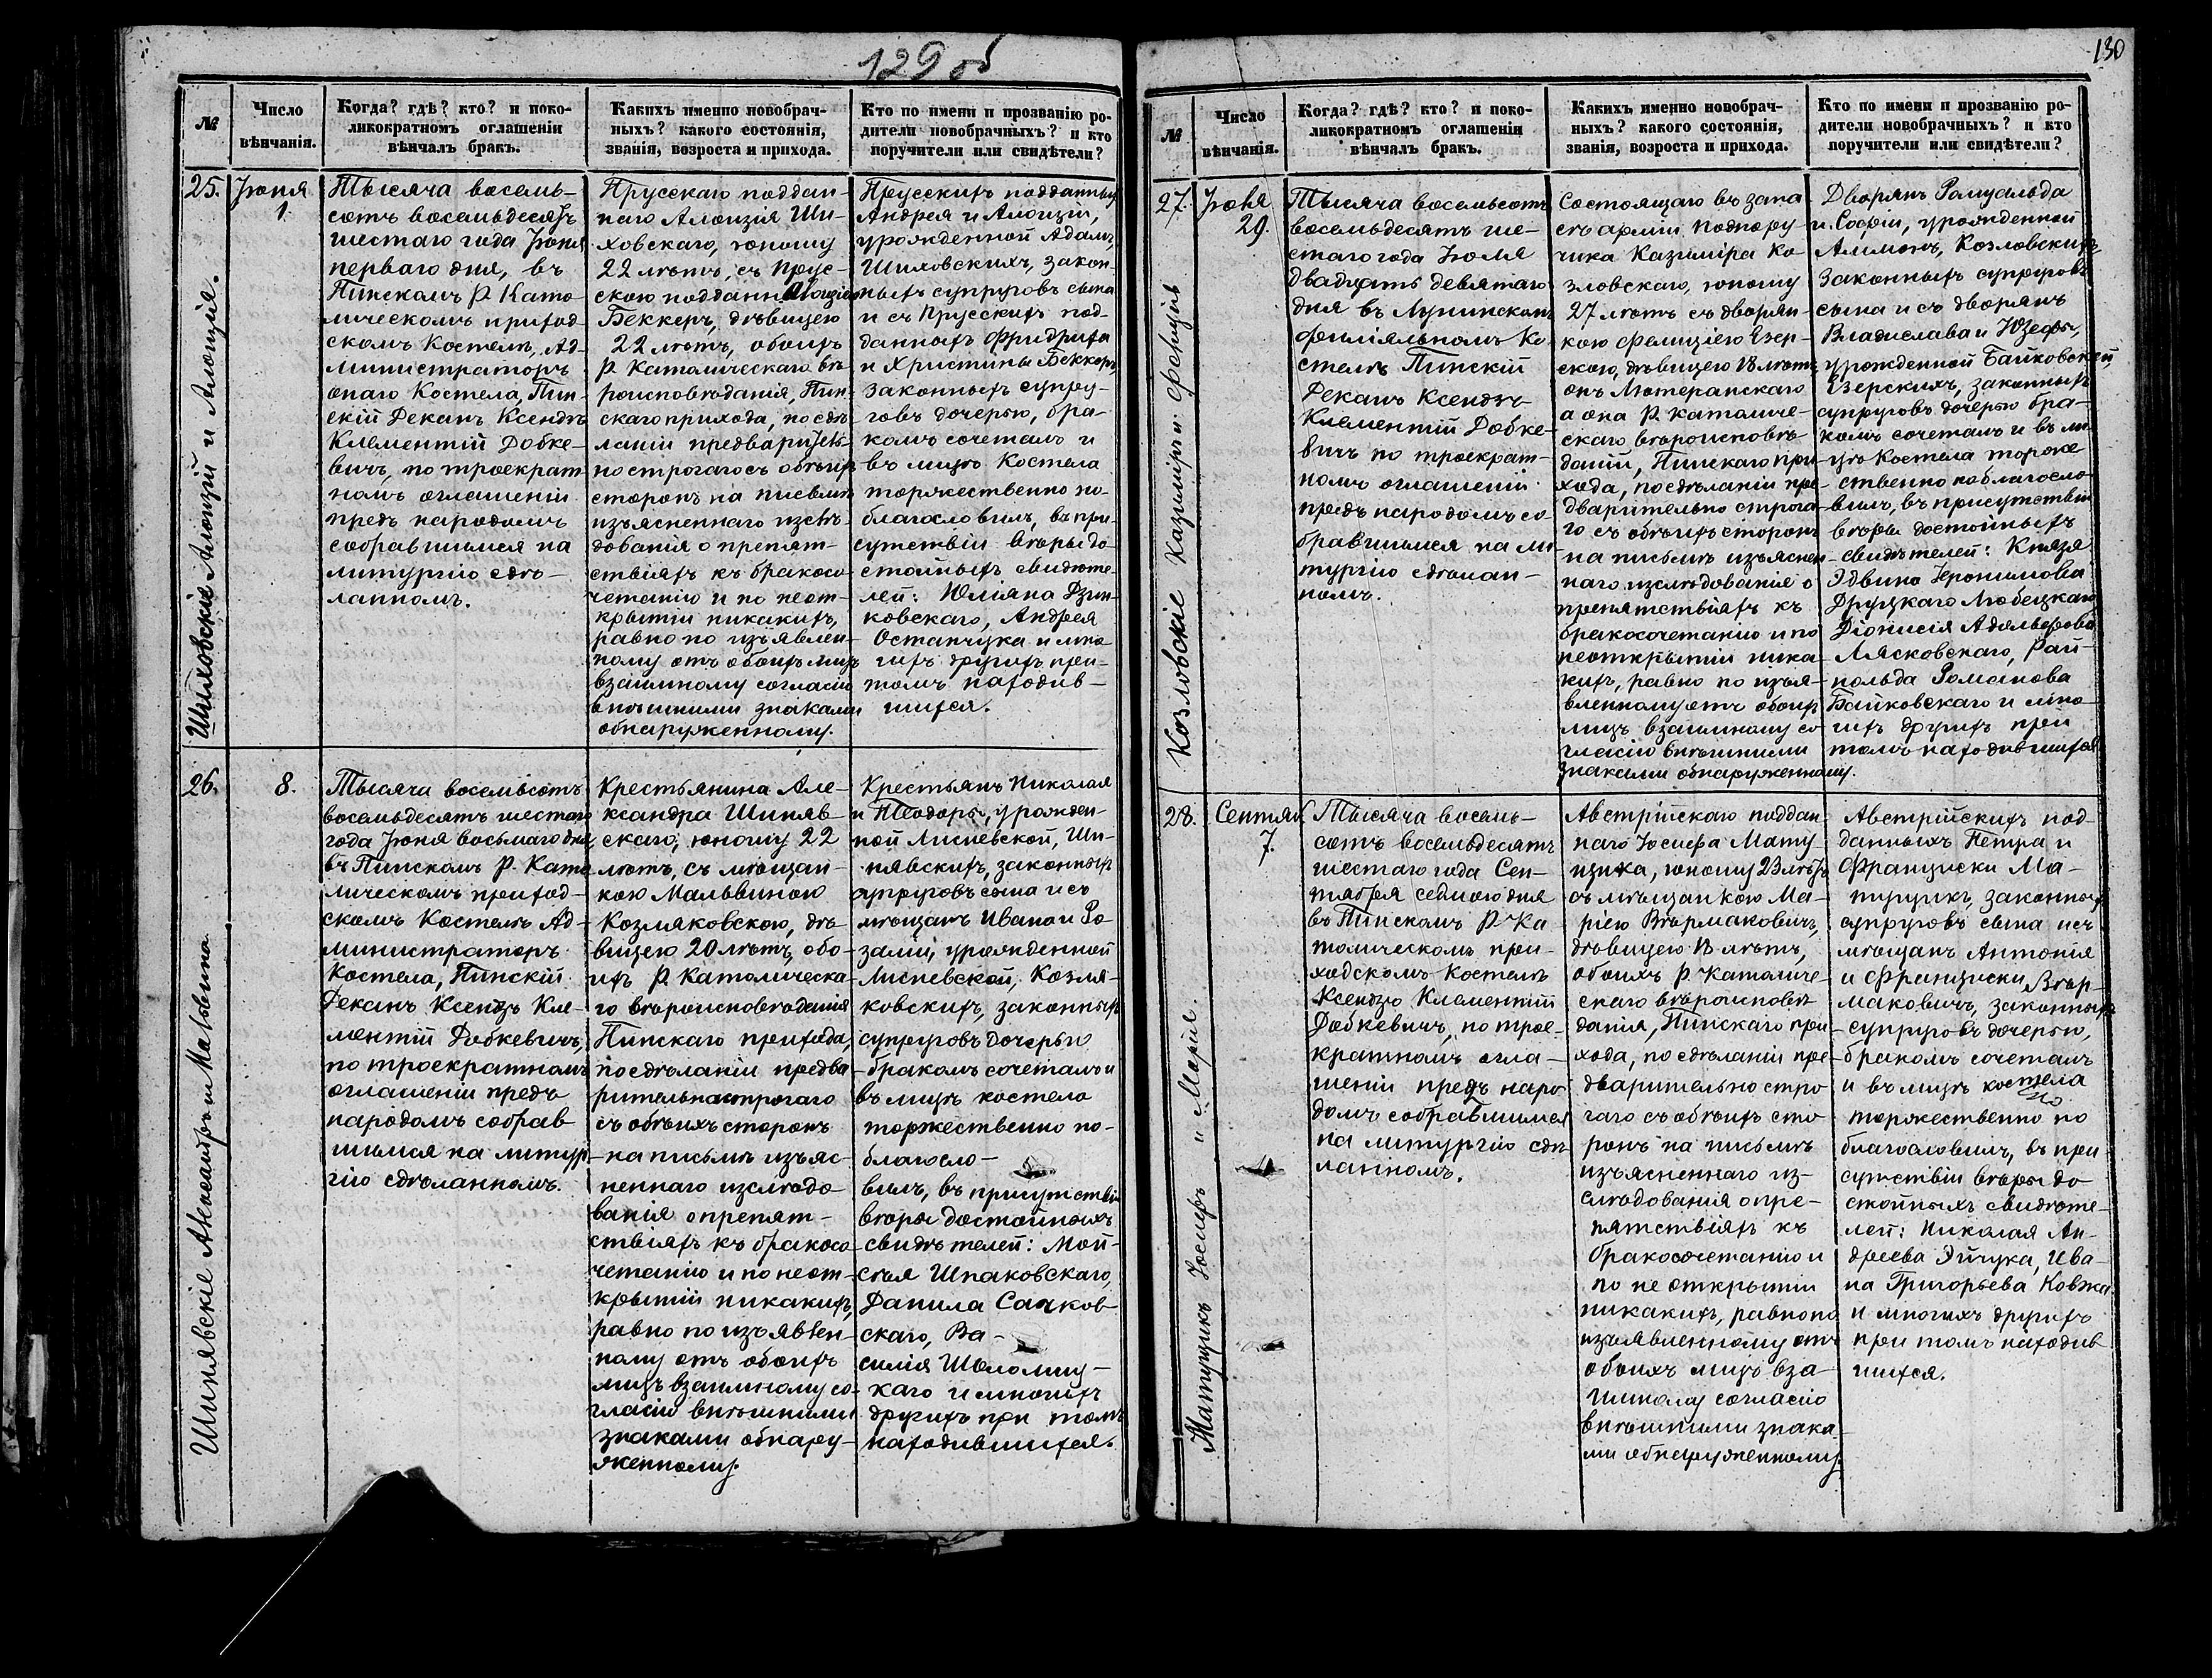 129 об
№
Число
вѣнчанія.
Когда? гдѣ? кто? и поко-
ликократномъ оглашеніи
вѣнчалъ бракъ.
Какихъ именно новобрач-
ныхъ? какого состоянія,
званія, возроста и прихода.
Кто по имени и прозванію ро-
дители новобрачныхъ? и кто
поручители или свидѣтели?
25.
Шиховскіе Алоизій и Алоизія.
Іюня
1.
Тысяча восемь-
сотъ восемьдесятъ
шестаго года Іюня
перваго дня, въ
Пинскомъ Р. Като-
лическомъ приход-
скомъ Костелѣ, Ад-
министраторъ
онаго Костела, Пин-
скій Деканъ Ксендзъ
Клементій Добке-
вичъ, по троекрат-
номъ оглашеніи
предъ народомъ
собравшимся на
литургію сдѣ-
ланномъ.
Прусскаго поддан-
наго Алоизія Ши-
ховскаго, юношу
22 лѣтъ, съ Прус-
скою подданн Алоизіею
Беккеръ, дѣвицею
22 лѣтъ, обоихъ
Р. Католическаго вѣ-
роисповѣданія, Пин-
скаго прихода, по сдѣ-
ланіи предваритель-
но строгаго съ обѣихъ
сторонъ на письмѣ
изъясненнаго изслѣ-
дованія о препят-
ствіяхъ къ бракосо-
четанію и по неот-
крытіи никакихъ,
равно по изъявлен-
ному отъ обоихъ лицъ
взаимному согласію
внѣшними знаками
обнаруженному.
Прусскихъ подданныхъ
Андрея и Алоизіи,
урожденной Адамъ,
Шиховскихъ, закон-
ныхъ супруговъ сына
и съ Прусскихъ под-
данныхъ Фридриха
и Христины Беккеръ
законныхъ супру-
говъ дочерью, бра-
комъ сочеталъ и
въ лицѣ Костела
торжественно по-
благословилъ, въ при-
сутствіи вѣры до-
стойныхъ свидѣте-
лей: Юліана Дзин-
ковскаго, Андрея
Остапчука и мно-
гихъ другихъ при
томъ находив-
шихся.
26.
Шинявскіе Александръ и Мальвина
8.
Тысяча восемьсотъ
восемьдесятъ шестаго
года Іюня восьмаго дня,
въ Пинскомъ Р. Като-
лическомъ приход-
скомъ Костелѣ Ад-
министраторъ
Костела, Пинскій
Деканъ Ксендзъ Кле-
ментій Добкевичъ,
по троекратномъ
оглашеніи предъ
народомъ собрав
шимся на литур-
гію сдѣланномъ.
Крестьянина Але-
ксандра Шиняв-
скаго, юношу 22
лѣтъ, съ мѣщан-
кою Мальвиною
Козляковскою, дѣ-
вицею 20 лѣтъ, обо-
ихъ Р. Католическа-
го вѣроисповѣданія
Пинскаго прихода,
по сдѣланіи предва-
рительно строгаго
съ обѣихъ сторонъ
на письмѣ изъяс-
неннаго изслѣдо-
ванія о препят-
ствіяхъ къ бракосо-
четанію и по неот-
крытіи никакихъ,
равно по изъявлен-
ному отъ обоихъ
лицъ взаимному со-
гласію внѣшними
знаками обнару-
женному.
Крестьянъ Николая
и Теодоры, урожден-
ной Лисневской, Ши-
нявскихъ, законныхъ
супруговъ сына и съ
мѣщанъ Ивана и Ро-
заліи, урожденной
Лисневской, Козля-
ковскихъ, законныхъ
супруговъ дочерью
бракомъ сочеталъ и
въ лицѣ костела
торжественно по-
благосло-
вилъ, въ присутствіи
вѣры достойныхъ
свидѣтелей: Мой-
сѣя Шпаковскаго,
Данила Сачков-
скаго, Ва-
силія Шоломиц-
каго и многихъ
другихъ при томъ
находившихся.
130
№
Число
вѣнчанія.
Когда? гдѣ? кто? и поко-
ликократномъ оглашеніи
вѣнчалъ бракъ.
Какихъ именно новобрач-
ныхъ? какого состоянія,
званія, возроста и прихода.
Кто по имени и прозванію ро-
дители новобрачныхъ? и кто
поручители или свидѣтели?
27.
Козловскіе Казиміръ и Фелиція
Іюля
29.
Тысяча восемьсотъ
восемьдесятъ ше-
стаго года Іюля
двадцать девятаго
дня въ Лунинскомъ
филіяльномъ Ко-
стелѣ Пинскій
Деканъ Ксендзъ
Клементій Добке-
вичъ по троекрат-
номъ оглашеніи
предъ народомъ со-
бравшимся на ли-
тургію сдѣлан-
номъ.
Состоящаго въ запа
сѣ арміи Подпору
чика Казиміра Ко-
зловскаго, юношу
27 лѣтъ съ дворян-
кою Фелиціею Езер-
скою, дѣвицею 18 лѣтъ,
онъ Лютеранскаго
а она Р. католиче-
скаго вѣроисповѣ-
даній, Пинскаго при-
хода, по сдѣланіи пре-
дварительно строга-
го съ обѣихъ сторонъ
на письмѣ изъяснен-
наго изслѣдованія о
препятствіяхъ къ
бракосочетанію и по
неоткрытіи ника-
кихъ, равно по изъя-
вленному отъ обоихъ
лицъ взаимному со
гласію внѣшними
знаками обнаруженному.
Дворянъ Ромуальда
и Софіи, урожденной
Алимонъ, Козловскихъ
законныхъ супруговъ
сына и съ дворянъ
Владислава и Юзефы,
урожденной Байковской,
Езерскихъ, законныхъ
супруговъ дочерью бра-
комъ сочеталъ и въ ли-
цѣ Костела торже-
ственно поблагосло-
вилъ, въ присутствіи
вѣры достойныхъ
свидѣтелей: Князя
Эдвина Іеронимова
Друцкаго Любецкаго
Діонисія Адольфова
Лясковскаго, Рай-
нольда Романова
Байковскаго и мно-
гихъ другихъ при
томъ находившихся
28.
Матущикъ Іосифъ и Марія
Сентяб.
7.
Тысяча восемь-
сотъ восемьдесятъ
шестаго года Сен-
тября седмого дня
въ Пинскомъ Р. Ка-
толическомъ при-
ходскомъ Костелѣ
Ксендзъ Клементій
Добкевичъ, по трое-
кратномъ огла-
шеніи предъ наро-
домъ собравшимся
на литургію сдѣ-
ланномъ.
Австрійскаго поддан
наго Іосифа Мату
щика, юношу 23 лѣтъ
съ мѣщанкою Ма-
ріею Вѣрмаковичъ,
дѣвицею 18 лѣтъ,
обоихъ Р. Католиче-
скаго вѣроисповѣ
данія, Пинскаго при-
хода, по сдѣланіи пре-
дварительно стро
гаго съ обѣихъ сто
ронъ на письмѣ
изъясненнаго из-
слѣдованія о пре-
пятствіяхъ къ
бракосочетанію и
по не открытіи
никакихъ, равно по
изъявленному отъ
обоихъ лицъ вза-
имному согласію
внѣшними знака-
ми обнаруженному.
Австрійскихъ под-
данныхъ Петра и
Франциски Ма-
тущикъ, законныхъ
супруговъ сына и съ
мѣщанъ Антонія
и Франциски Вѣр-
маковичъ, законныхъ
супруговъ дочерью,
бракомъ сочеталъ
и въ лицѣ костела
торжественно по
благословилъ, въ при
сутствіи вѣры до
стойныхъ свидѣте-
лей: Николая Ан-
дреева Эйчука, Ива-
на Григорьева Ковжа
и многихъ другихъ
при томъ находив
шихся.